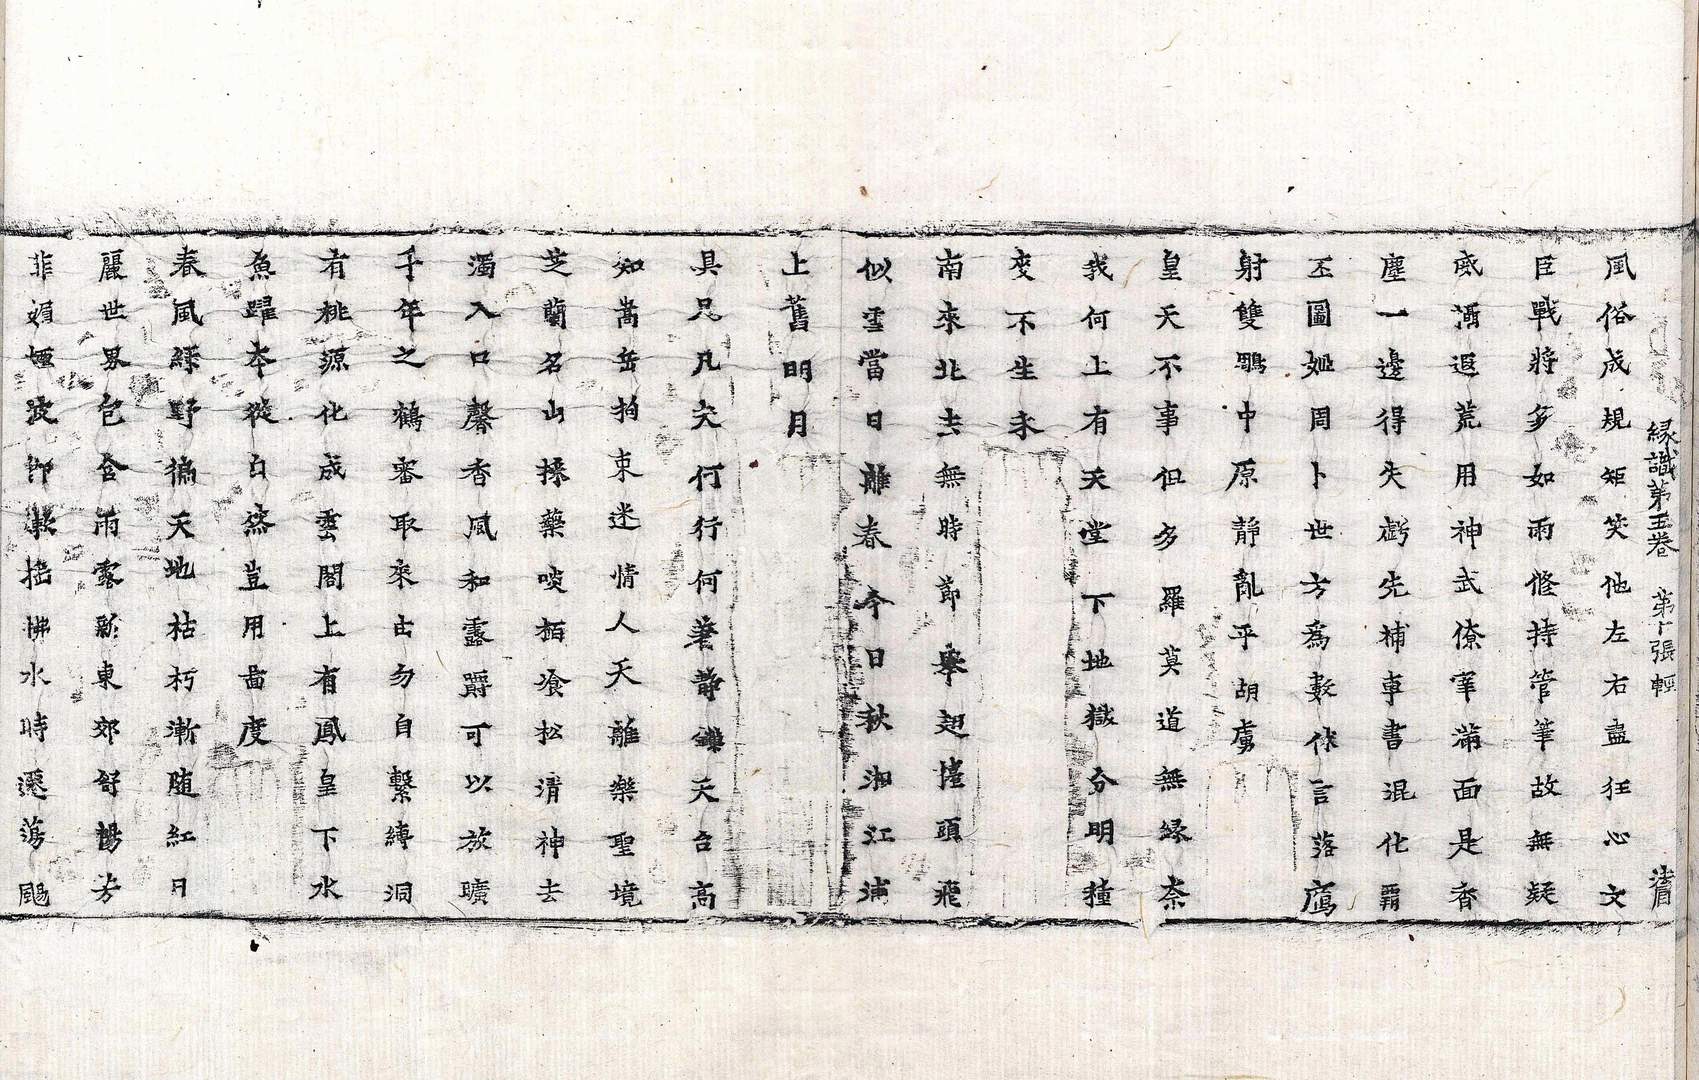 緣識第五卷 第十張 輕
風俗成規矩笑他左右盡狂心文
臣戰將多如雨修持管筆故無疑
威潘遐荒用神武僚宰滿面是香
塵一邊得失虧先補車書混化霸
丕圖姬周卜世方為數休言落鴈
射雙鵰中原靜亂乎胡虜
皇天不事但多羅莫道無緣奈
我何上有天堂下地獄分明種
變不生禾
南來北去無時節舉翅擡頭飛
似雪當日離春今日秋湘江浦
上舊明月
具凡凡夫何行何著靜鎮天台高
知嵩岳拍束迷情人天離樂聖境
芝蘭名山採藥啖栢飡松清神去
濁入口馨香風和露爵可以放曠
千年之鶴審取來由勿自繫縛洞
有桃源化成雲閣上有鳳皇下水
魚躍本從自然豈用啚度
春風綠野徧天地枯朽漸随紅日
麗世界包含雨露新東郊舒暢芳
菲媚煙波御漱揺怫水時遷蕩颺